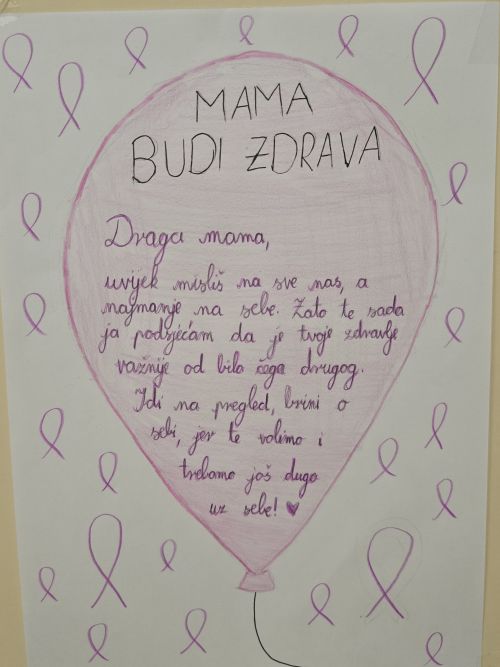 MAMA
BUDI ZDRAVA
Draga mama,
uvijek misliš na sve nas, a
najmanje na sebe. Zato te sada
ja podsjećam da je tvoje zdravlje
važnije od bilo čega drugog.
Idi na pregled, brini o
sebi, jer te volimo i
trebamo još dugo
uz sebe! ♥